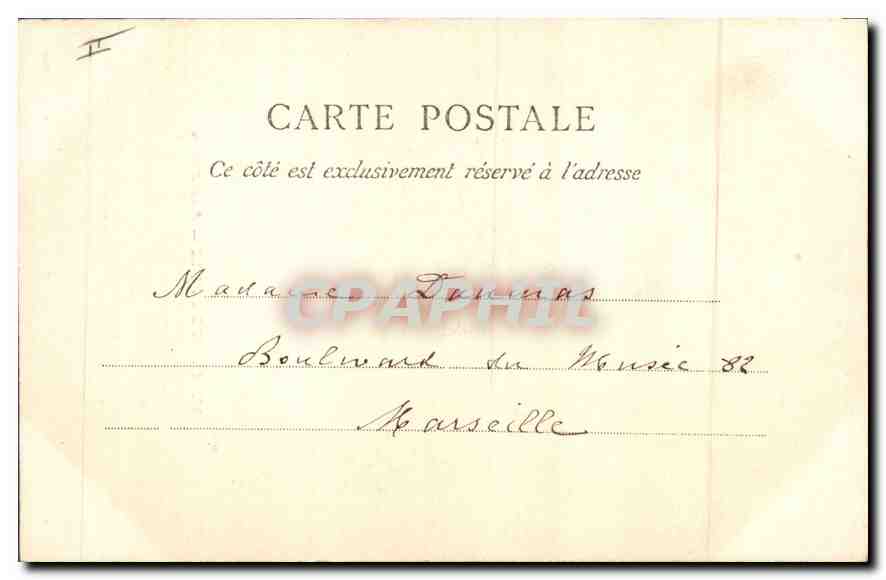 II
CARTE POSTALE
Ce côté est exclusivement réservé à l'adresse
Madame Daumas
CPAPHIL
Boulevard du Musée 82
Marseille